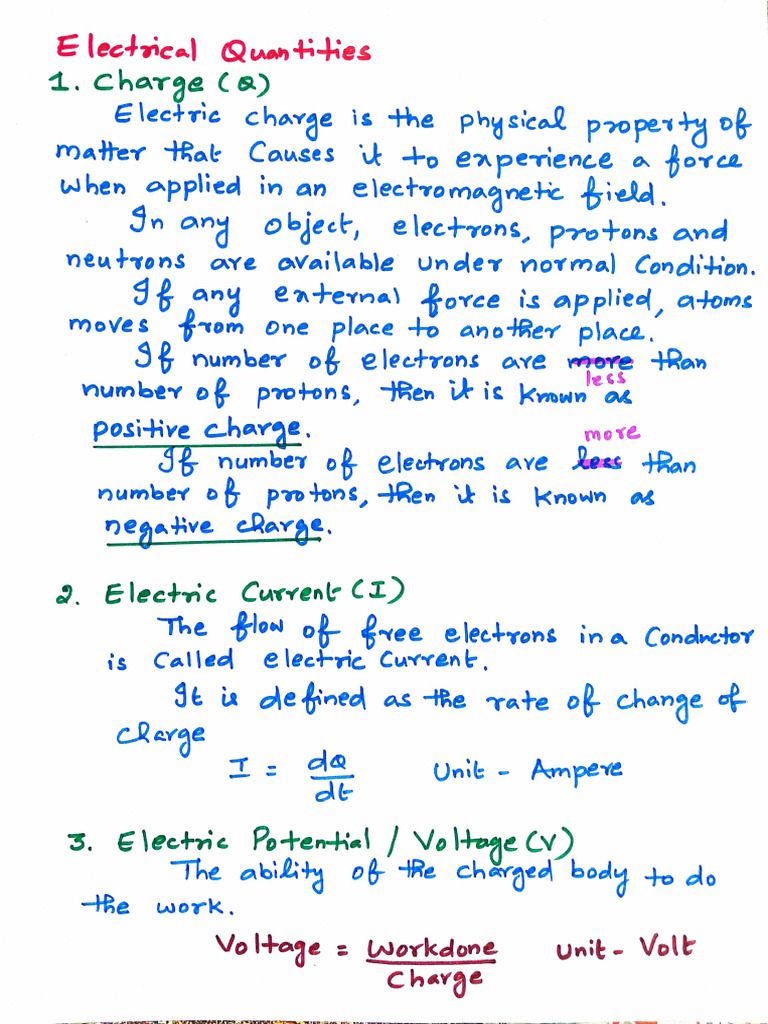 Electrical Quantities
1. Charge (Q)
Electric charge is the physical property of
matter that Causes it to experience a force
when applied in an electromagnetic field.
In any object, electrons, protons and
neutrons are available under normal Condition.
If any external force is applied, atoms
moves from one place to another place.
If number of electrons are more than
less
number of protons, then it is known as
positive charge.
more
If number of electrons are less than
number of protons, then it is known as
negative charge.
2. Electric Current (I)
The flow of free electrons in a Conductor
is Called electric Current.
It is defined as the rate of change of
charge
I = dQ/dt Unit - Ampere
3. Electric Potential / Voltage (V)
The ability of the charged body to do
the work.
Voltage = Workdone/Charge Unit - Volt